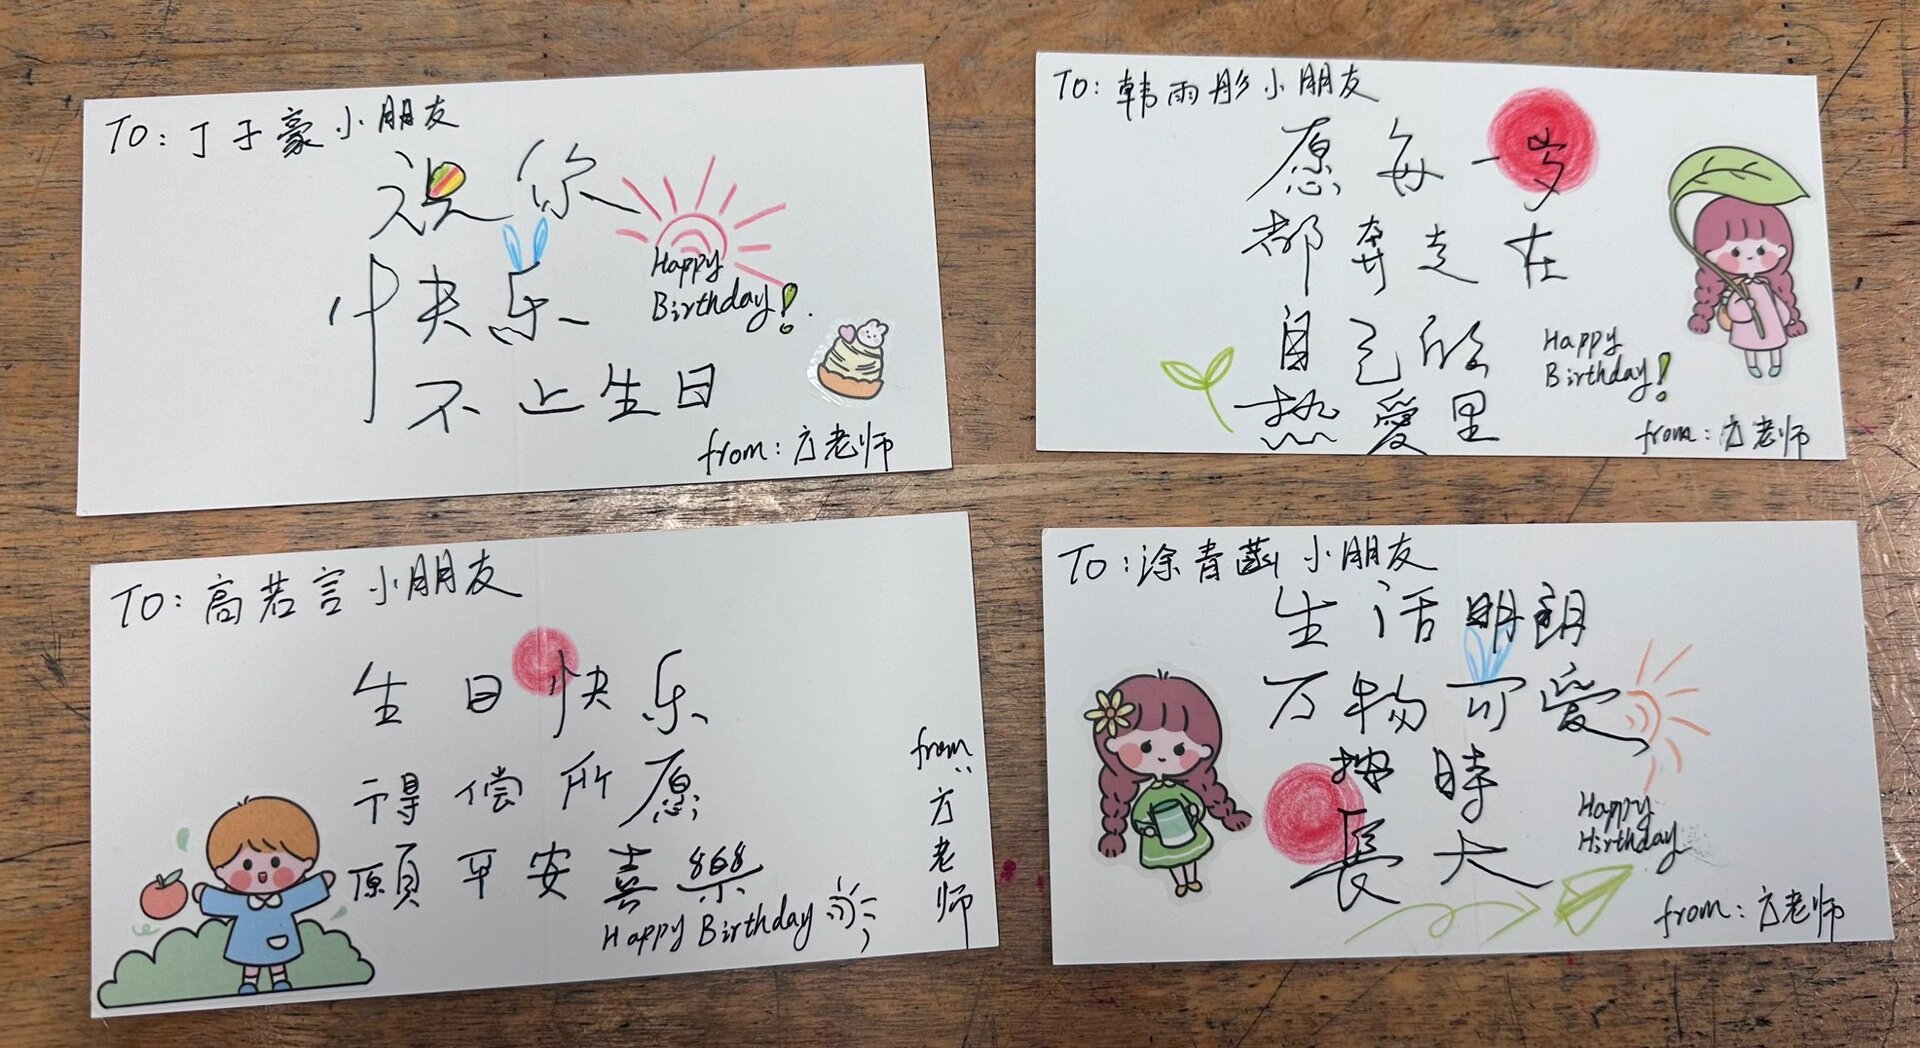 TO: 丁子豪小朋友
祝你
快乐
不止生日
Happy
Birthday!
from: 方老师
TO: 韩雨彤小朋友
愿每一岁
都奔走在
自己的
热愛里
Happy
Birthday!
from: 方老师
TO: 高若言小朋友
生日快乐
得偿所愿
願平安喜樂
Happy Birthday
from: 方老师
TO: 涂青菡小朋友
生活明朗
万物可爱
按時
長大
Happy
Hirthday
from: 方老师